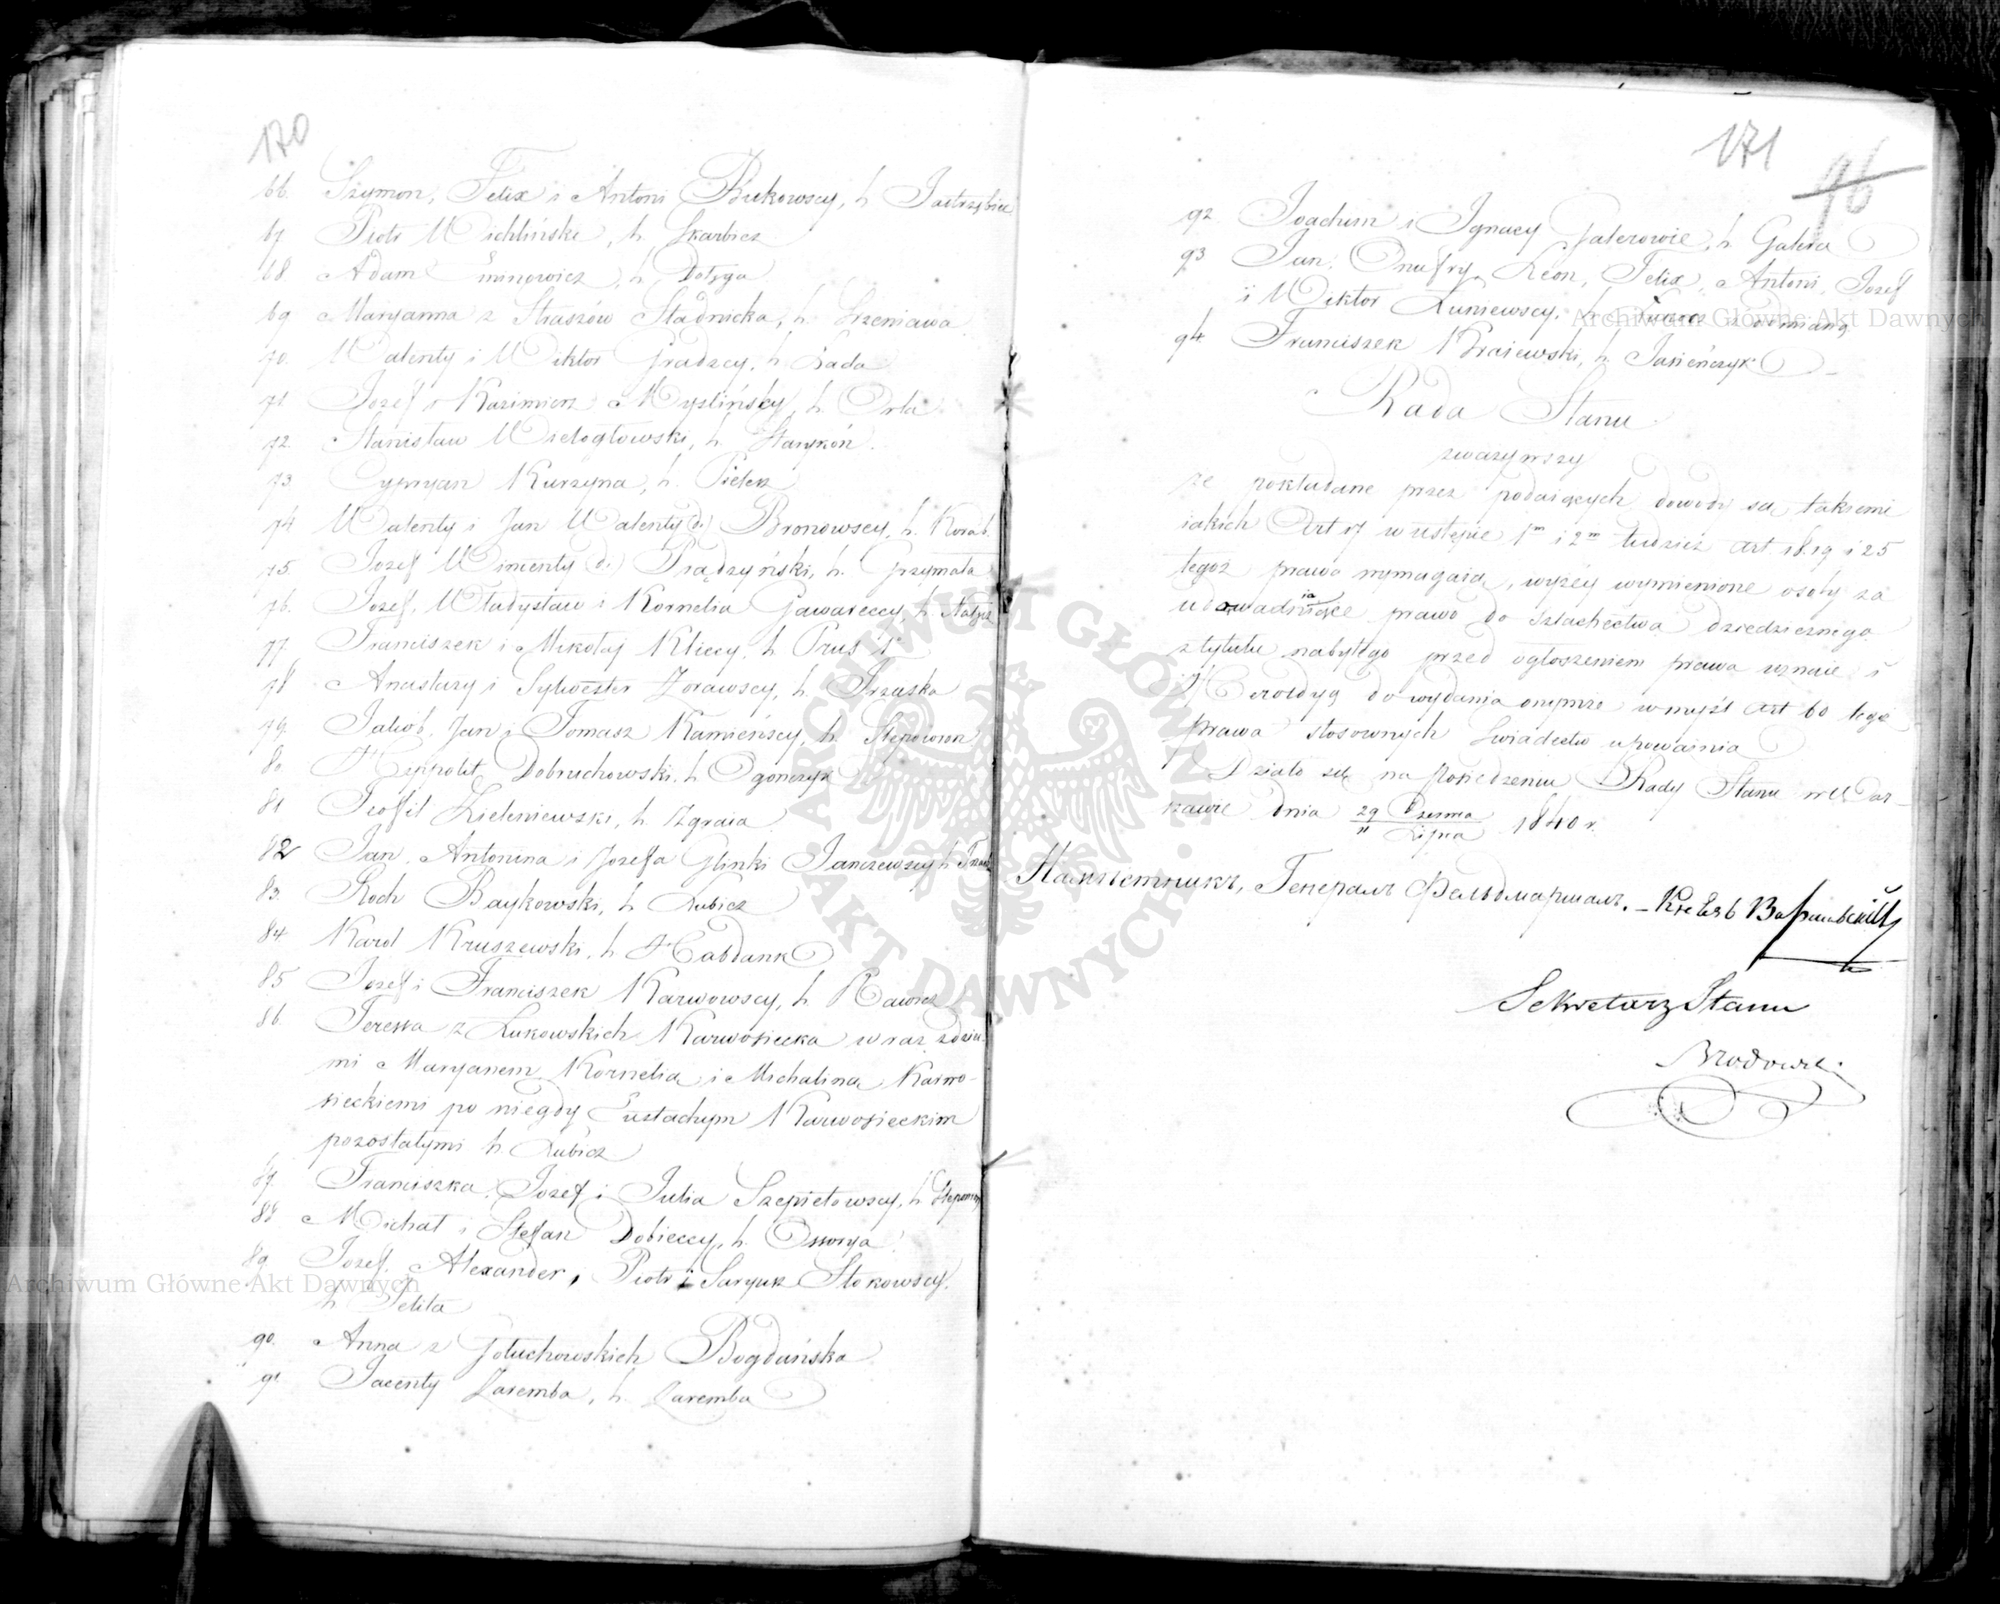 170
66. Szymon, Felix i Antoni Bukowscy, h. Jastrzębiec
67 Piotr Wichliński, h. Skarbicz
68. Adam Eminowicz, h. Dołęga
69 Maryanna z Straszów Stadnicka, h. Srzeniawa
70. Walenty i Wiktor Gradzcy, h. Łada
71 Jozef i Kazimierz Myślińscy, h. Orla
72. Stanisław Wielogłowski, h. Starykoń.
73. Cypryan Kurzyna, h. Pielesz
74 Walenty i Jan Walenty (2i.) Bronowscy, h. Korab.
75. Jozef Wincenty (2i.) Prądzyński, h. Grzymała
76. Jozef, Władysław i Kornelia Gawareccy, h.
77. Franciszek i Mikołaj Kliccy, h. Prus 1º
78 Anastazy i Sylwester Zorawscy, h. Trzaska
79. Jakób, Jan i Tomasz Kamieńscy, h. Slepowron
80 Hyppolit Dobruchowski, h. Ogończyk
81 Teofil Zieleniewski, h. Zgraia
82 Jan, Antonina i Jozefa Glinki Janczewscy h.
83. Roch Baykowski, h. Lubicz
84 Karol Kruszewski, h. Habdank
85 Jozef i Franciszek Karwowscy, h. Rawicz
86 Teressa z Łukowskich Karwosiecka wraz z dzie-
mi Maryanem, Kornelią i Michaliną Karwo-
sieckiemi po niegdy Eustachym Karwosieckim
pozostałymi h. Lubicz
87. Franciszka, Jozef i Julia Szepietowscy, h.
88 Michał i Stefan Dobieccy, h. Ossorya
89 Jozef, Alexander, Piotr i Saryusz Stokowscy.
h. Jelita
90. Anna z Gołuchowskich Bogdańska
91 Jacenty Zaremba, h. Zaremba
171
96
92 Joachim i Ignacy Galerowie, h. Galera
93 Jan, Onufry, Leon, Felix, Antoni, Jozef
i Wiktor Łuniewscy, h. z odmianą
94. Franciszek Kraiewski, h. Jasieńczyk
Rada Stanu
zważywszy
że pokładane przez podaiących dowody są takiemi
iakich Art 17 w ustępie 1m i 2m tudzież art 18.19 i 25
tegoż prawa wymagaią, wyżey wymienione osoby za
udowadniaiące prawo do szlachectwa dziedzicznego
z tytułu nabytego przed ogłoszeniem prawa uznaie i
Heroldyą do wydania onymże w myśl art 60 tego
prawa stosownych świadectw upoważnia
Działo się na Posiedzeniu Rady Stanu w War-
szawie dnia 29 Czerwca / 11 Lipca 1840 r.
Намѣстникъ, Генералъ Фельдмаршалъ. - Князь Варшавскій
Sekretarz Stanu
Brodowski
Archiwum Główne Akt Dawnych
Archiwum Główne Akt Dawnych
ARCHIWUM GŁÓWNE · AKT DAWNYCH ·